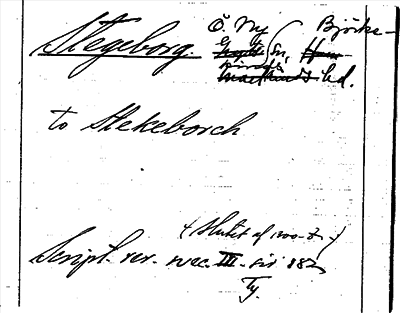 Stegeborg. Ö. Ny sn, Björke-
kinds hd.
to Stekeborch
(Slutet af 1200-t.)
Script. rer. svec. III. sid 182
Ty.